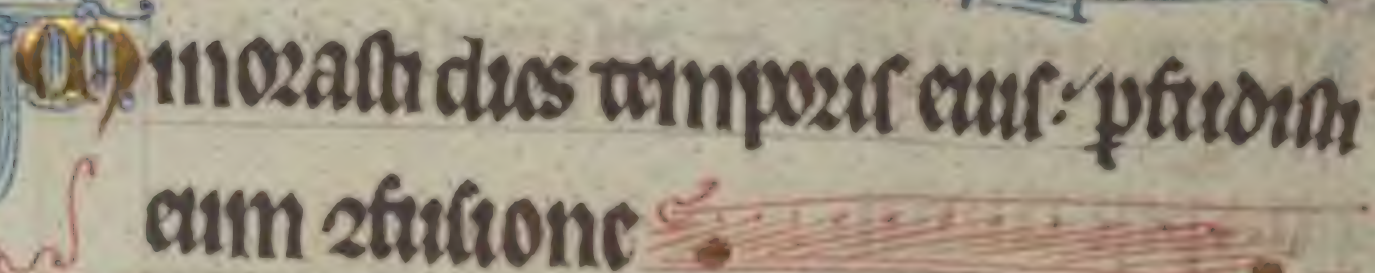 Minorasti dies temporis eius: pfudisti
eum ꝯfusione